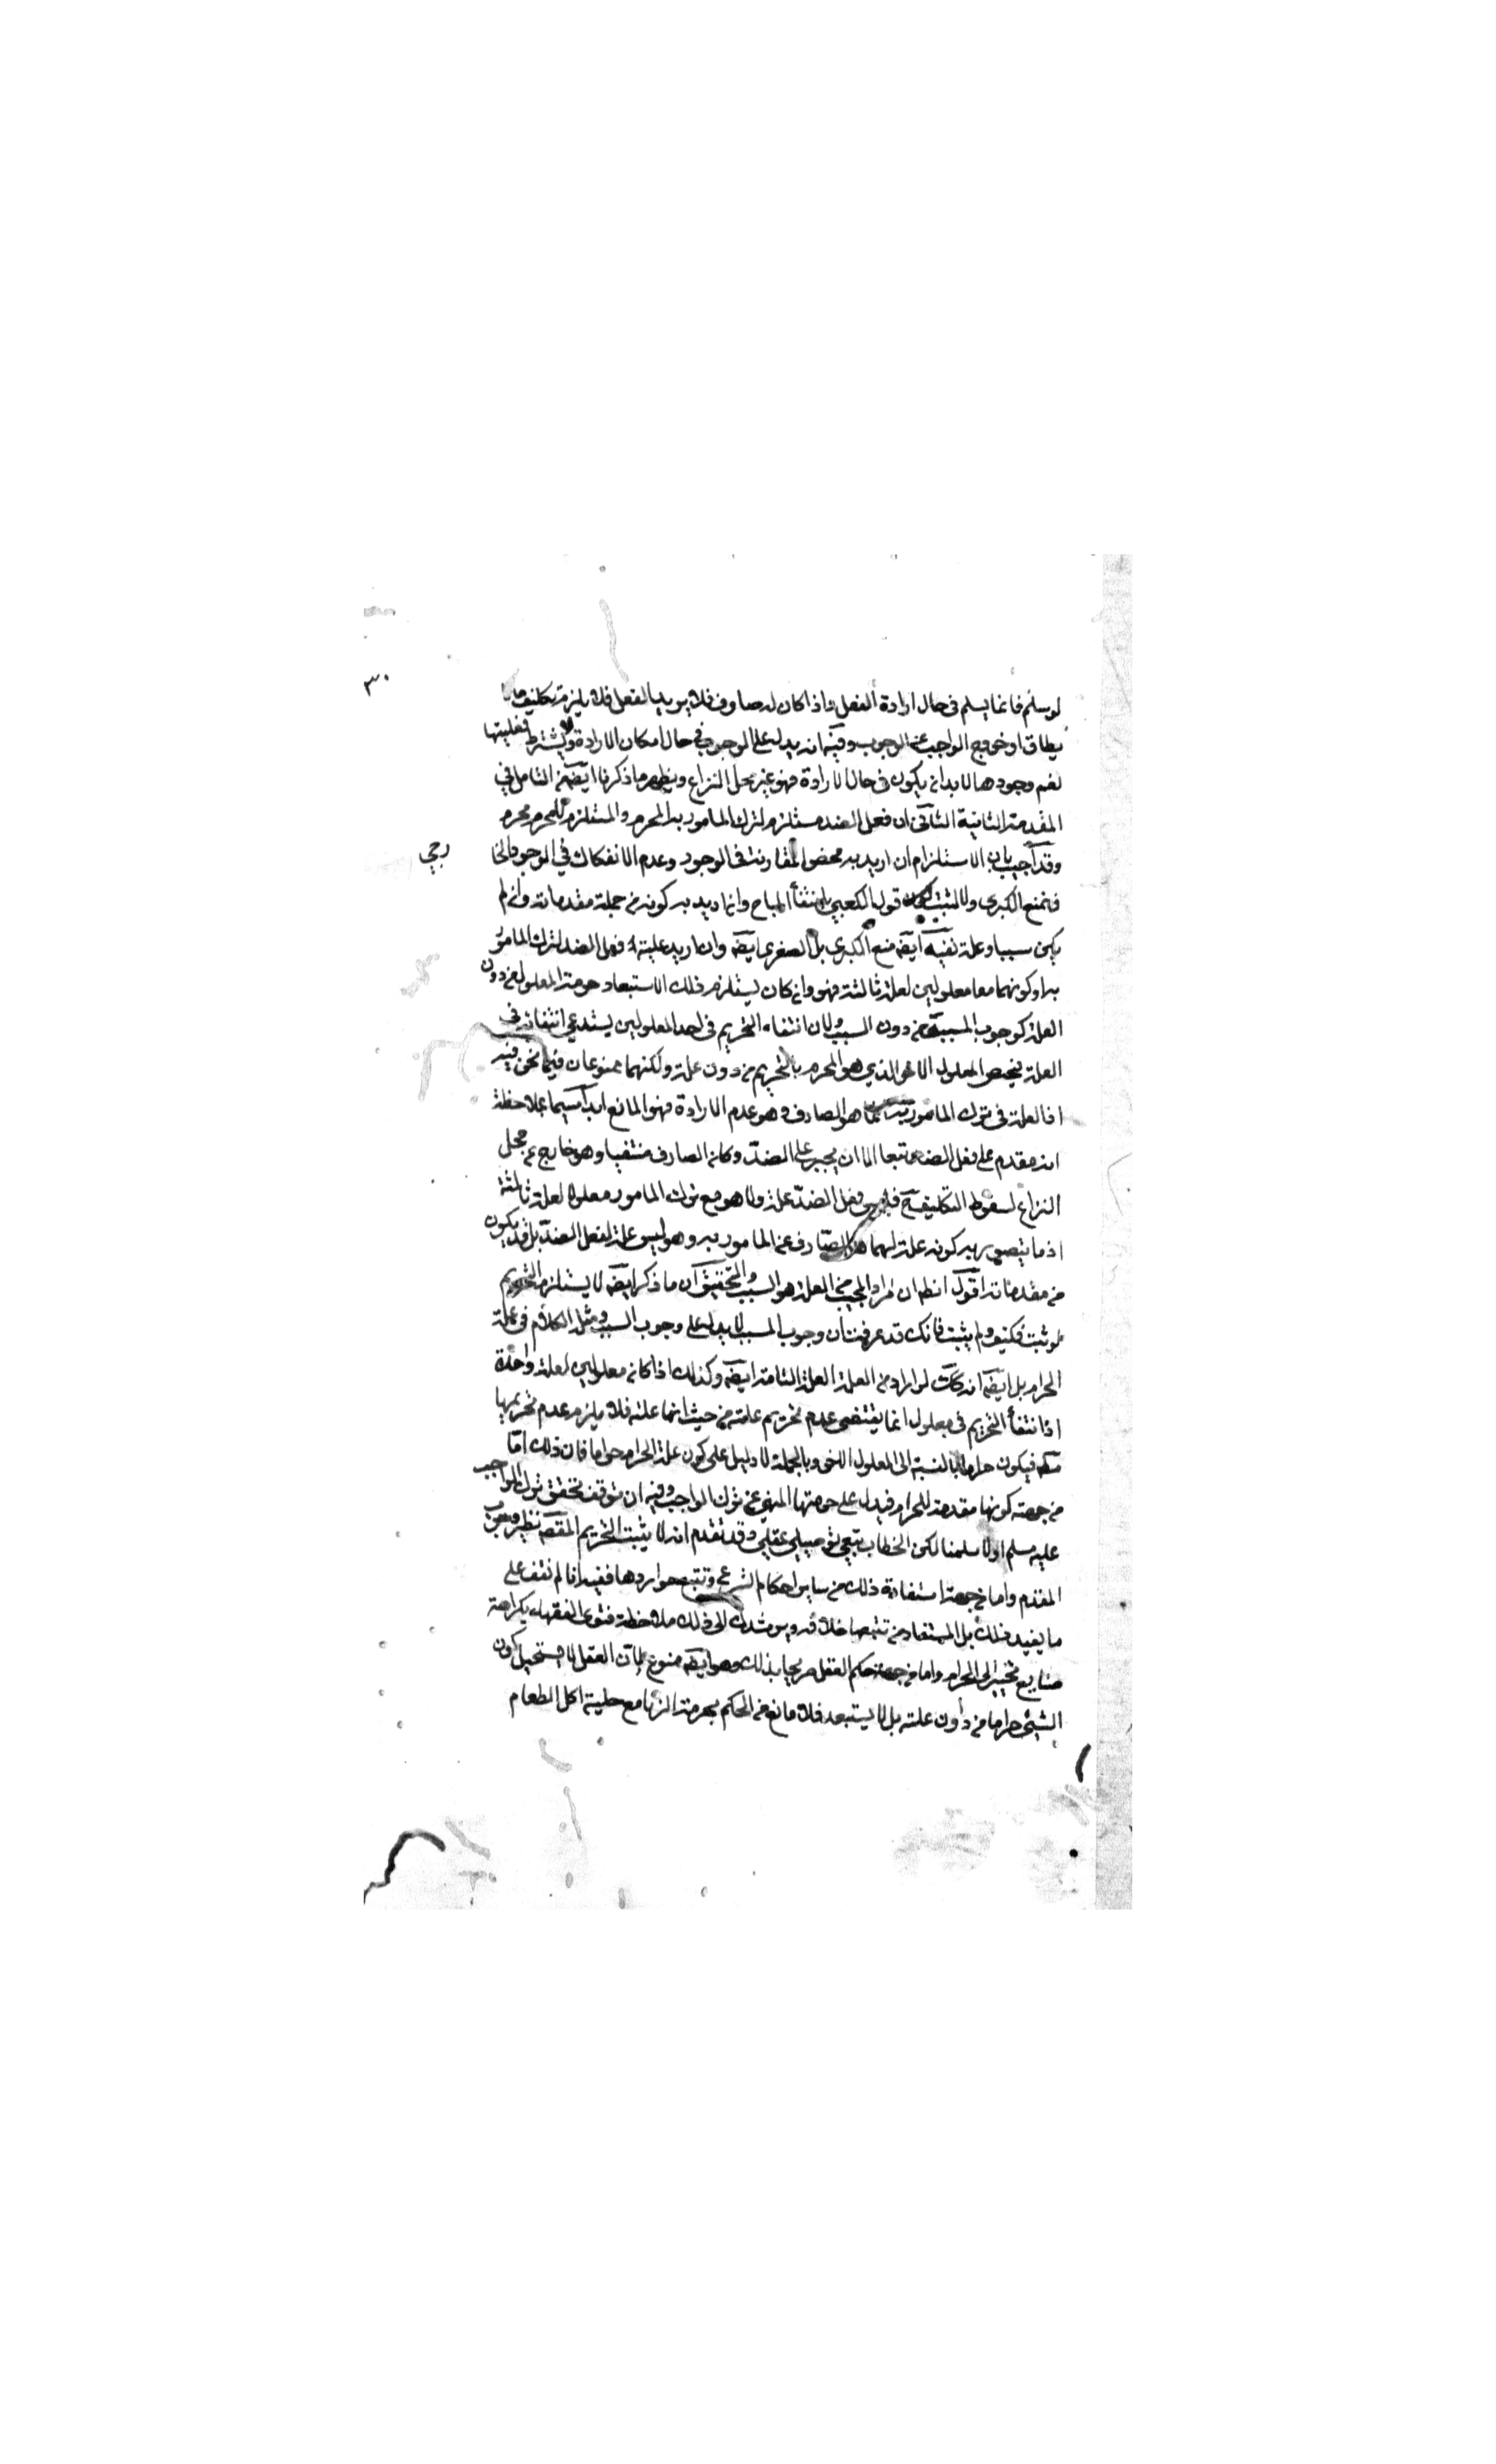 ٣٠
لو سلم فانما يسلم فى حال ارادة الفعل واذا كان له صارف فلا يريد الفعل فلا يلزم تكليف ما لا
يطاق او خروج الواجب عن الوجوب وفيه انه يدل على الوجوب فى حال امكان الارادة ولا يشترط فعليتها
نعم وجودها لا بد ان يكون فى حال الارادة فهو غير محل النزاع ويظهر ما ذكرنا ايضه من التامل فى
المقدمة الثانية الثانى ان فعل الضد مستلزم لترك المامور به المحرم والمستلزم للمحرم محرم
وقد اجيب بان الاستلزام ان اريد به محض المقارنة فى الوجود وعدم الانفكاك فى الوجود الخارجي
فنمنع الكبرى ولا لثبت قول الكعبي بانتفاء المباح وان اريد به كونه من جملة مقدماته وان لم
يكن سببا وعلة ففيه ايضه منع الكبرى بل الصغرى ايضه وان اريد علية فعل الضد لترك المامور
به او كونهما معا معلولين لعلة ثالثة فهو وان كان يستلزم ذلك لاستبعاد حرمة المعلول من دون
العلة كوجوب المسبب من دون السبب ولان انتفاء التحريم فى احد المعلولين يستدعي انتفائه فى
العلة فيختص المعلول الاخر الذي هو المحرم بالتحريم من دون علة ولكنهما ممنوعان فيما نحن فيه
اذ العلة فى ترك المامور به انما هو الصارف وهو عدم الارادة فهو المانع ابدا سيما بملاحظة
انه مقدم على فعل الضد طبعا الا ان يجبر على الضد وكان الصارف منتفيا وهو خارج عن محل
النزاع لسقوط التكليف ح فليس فعل الضد علة ولا هو مع ترك المامور معلولا لعلة ثالثة
اذ ما يتصور به كونه علة لهما هو الصارف عن المامور به وهو ليس علة لفعل الضد بل قد يكون
من مقدماته اقول انظ ان مراد المجيب من العلة هو السبب والتحقيق ان ما ذكر ايضه لا يستلزم التحريم
لو ثبت فكيف ولم يثبت فانك قد عرفت ان وجوب المسبب لا يدل على وجوب السبب ومثله الكلام فى علة
الحرام بل ايضه انه لو اراد من العلة العلة التامة ايضه وكذلك اذا كانا معلولين لعلة واحدة
اذ انتفاء التحريم فى معلول انما يقتضى عدم تحريم علته من حيث انها علته فلا يلزم عدم تحريمها
مط فيكون حراما بالنسبة الى المعلول الاخر وبالجملة لا دليل على كون علة الحرام حراما فان ذلك اما
من جهة كونها مقدمة للحرام فيدل على حرمتها المنهي عن ترك الواجب وفيه ان توقف تحقق ترك الواجب
عليه مسلم اولا سلمنا لكن الخطاب تبعي توصيلي عقلي وقد تقدم انه لا يثبت التحريم المقصه نظير وجوب
المقدم واما من جهة استفادة ذلك من ساير احكام الشرع وتتبع مواردها ففيه انا لم نقف على
ما يفيد ذلك بل المستفاد من تتبعها خلافه ويرشدك الى ذلك ملاحظة فتوى الفقهاء بكراهة
صنايع تنجر الى الحرام واما من جهة حكم العقل صريحا بذلك وهو ايضه ممنوع لان العقل لا يستحيل كون
الشيئ حراما من دون علته بل لا يستبعد فلا مانع من الحكم بحرمة الزنا مع حلية اكل الطعام